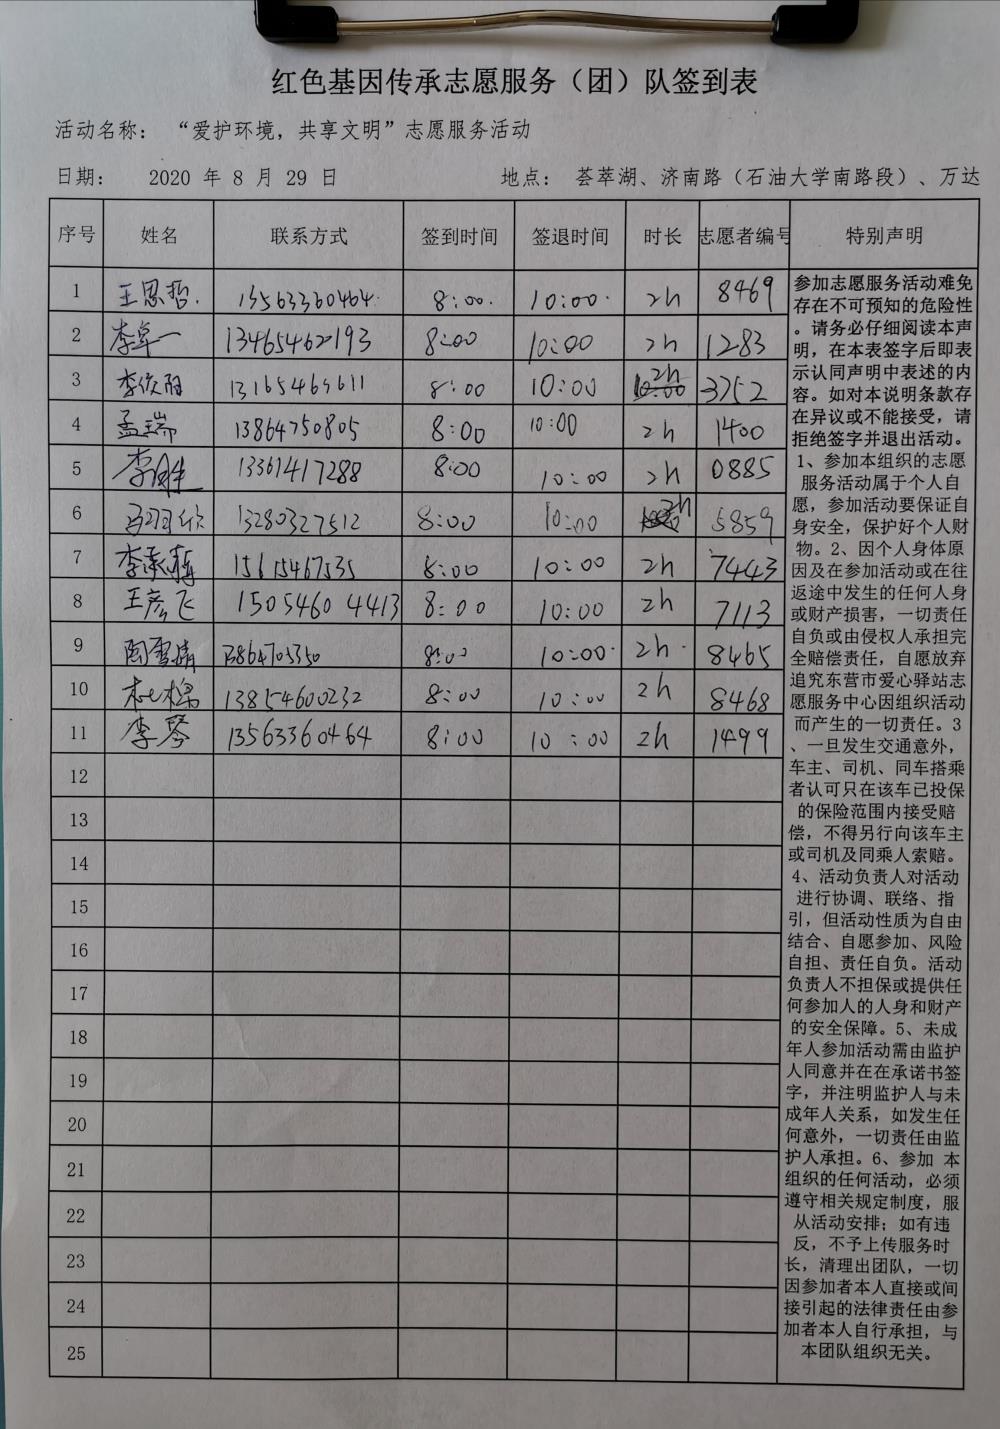 红色基因传承志愿服务（团）队签到表
活动名称： “爱护环境，共享文明”志愿服务活动
日期： 2020 年 8 月 29 日 地点： 荟萃湖、济南路（石油大学南路段）、万达
序号 姓名 联系方式 签到时间 签退时间 时长 志愿者编号 特别声明
1 王思哲. 13563360464. 8:00. 10:00. 2h 8469
2 李卓一 13465462193 8:00 10:00 2h 1283
3 李俊阳 13165469611 8:00 10:00 2h 3752
4 孟瑞 13864750805 8:00 10:00 2h 1400
5 李胜 13361417288 8:00 10:00 2h 0885
6 13280327512 8:00 10:00 2h 5859
7 李承臻 15615467535 8:00 10:00 2h 7443
8 王彦飞 15054604413 8:00 10:00 2h 7113
9 陶雪婧 13864705350 8:00 10:00. 2h. 8465
10 杜棉 13854600232 8:00 10:00 2h 8468
11 李琴 13563360464 8:00 10:00 2h 1499
12
13
14
15
16
17
18
19
20
21
22
23
24
25
参加志愿服务活动难免
存在不可预知的危险性
。请务必仔细阅读本声
明，在本表签字后即表
示认同声明中表述的内
容。如对本说明条款存
在异议或不能接受，请
拒绝签字并退出活动。
1、参加本组织的志愿
服务活动属于个人自
愿，参加活动要保证自
身安全，保护好个人财
物。2、因个人身体原
因及在参加活动或在往
返途中发生的任何人身
或财产损害，一切责任
自负或由侵权人承担完
全赔偿责任，自愿放弃
追究东营市爱心驿站志
愿服务中心因组织活动
而产生的一切责任。3
、一旦发生交通意外，
车主、司机、同车搭乘
者认可只在该车已投保
的保险范围内接受赔
偿，不得另行向该车主
或司机及同乘人索赔。
4、活动负责人对活动
进行协调、联络、指
引，但活动性质为自由
结合、自愿参加、风险
自担、责任自负。活动
负责人不担保或提供任
何参加人的人身和财产
的安全保障。5、未成
年人参加活动需由监护
人同意并在在承诺书签
字，并注明监护人与未
成年人关系，如发生任
何意外，一切责任由监
护人承担。6、参加 本
组织的任何活动，必须
遵守相关规定制度，服
从活动安排；如有违
反，不予上传服务时
长，清理出团队，一切
因参加者本人直接或间
接引起的法律责任由参
加者本人自行承担，与
本团队组织无关。